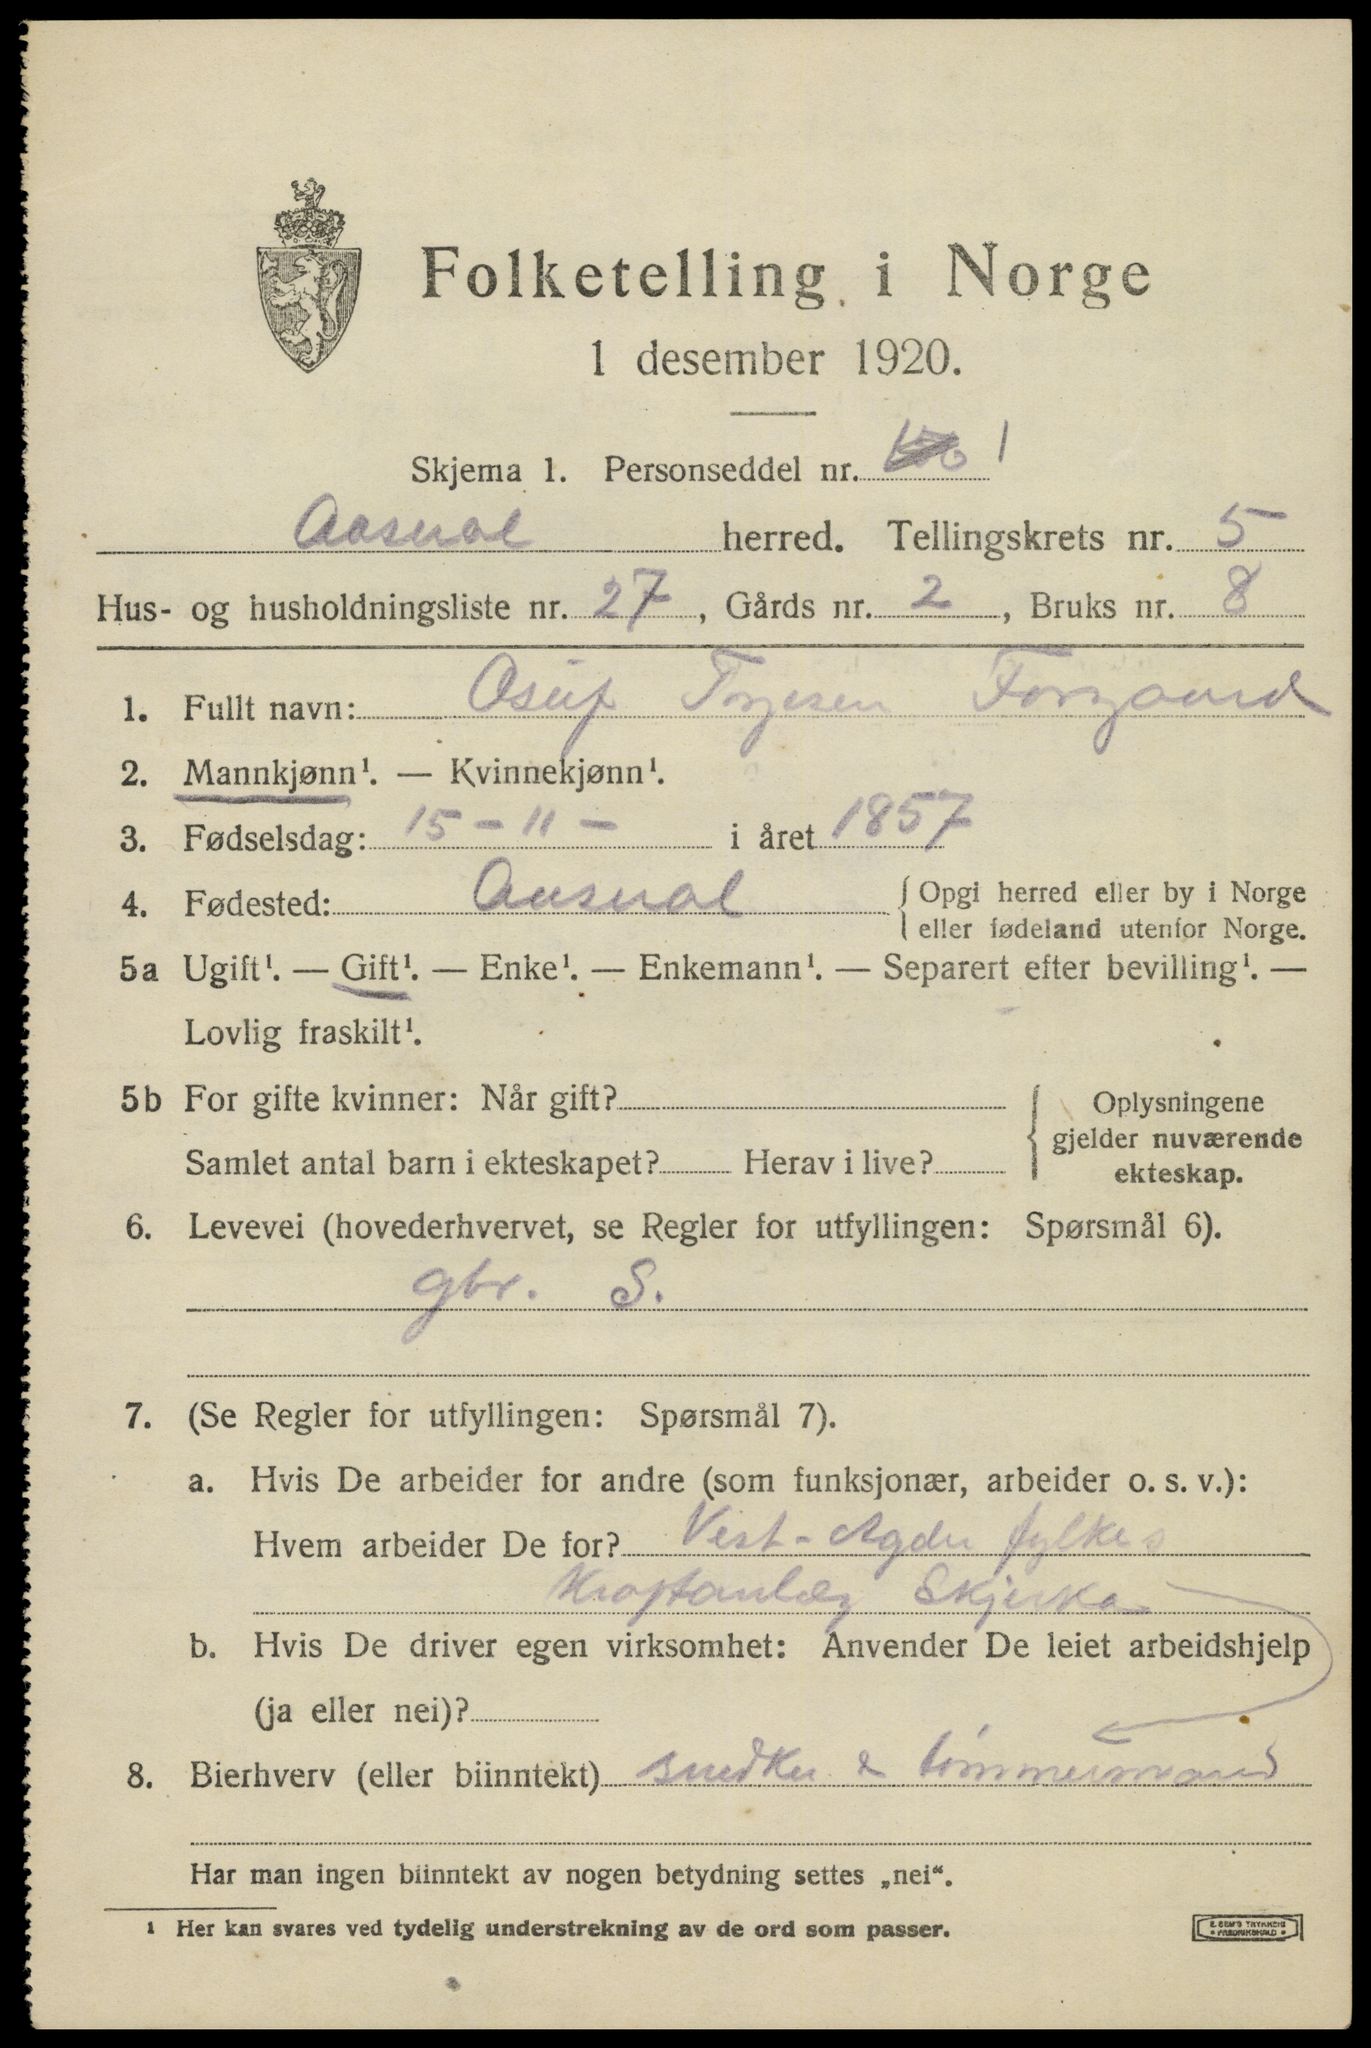 Folketelling i Norge
1 desember 1920.
Skjema 1. Personseddel nr. 1
Aaseral herred. Tellingskrets nr. 5
Hus- og husholdningsliste nr. 27, Gårds nr. 2, Bruks nr. 8
1. Fullt navn: Torjesen Forgaard
2. Mannkjønn¹. — Kvinnekjønn¹.
3. Fødselsdag: 15 - 11 - i året 1857
4. Fødested: Aaseral { Opgi herred eller by i Norge
eller fødeland utenfor Norge.
5a Ugift¹. — Gift¹. — Enke¹. — Enkemann¹. — Separert efter bevilling¹. —
Lovlig fraskilt¹.
5b For gifte kvinner: Når gift? { Oplysningene
gjelder nuværende
Samlet antal barn i ekteskapet? Herav i live? ekteskap.
6. Levevei (hovederhvervet, se Regler for utfyllingen: Spørsmål 6).
gbr. S.
7. (Se Regler for utfyllingen: Spørsmål 7).
a. Hvis De arbeider for andre (som funksjonær, arbeider o. s. v.):
Hvem arbeider De for? Vest-Agder fylkes
Kraftanlæg Skjerka
b. Hvis De driver egen virksomhet: Anvender De leiet arbeidshjelp
(ja eller nei)?
8. Bierhverv (eller biinntekt) snedker & tømmermand
Har man ingen biinntekt av nogen betydning settes „nei“.
¹ Her kan svares ved tydelig understrekning av de ord som passer.
E. SEM'S TRYKKERI
FREDRIKSHALD